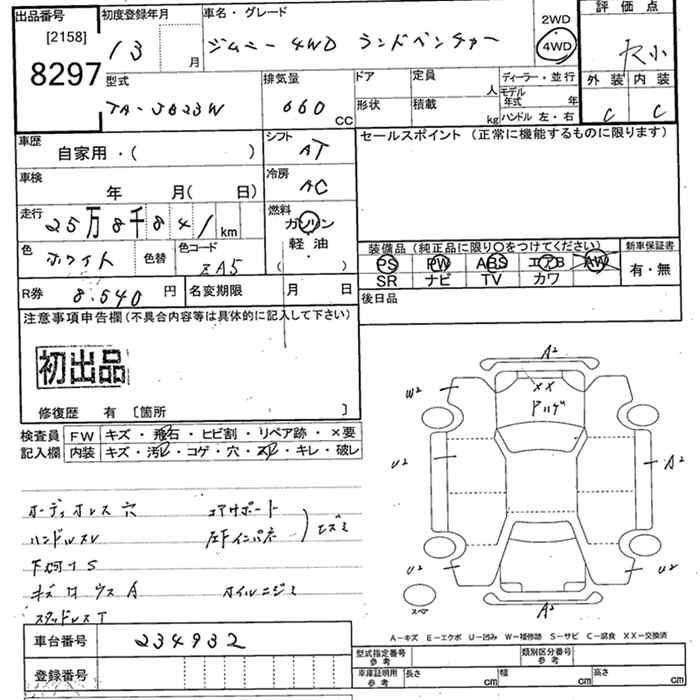 出品番号
[2158]
8297
初度登録年月
13
月
車名・グレード
ジムニー 4WD ランドベンチャー
2WD
4WD
評価点
外装 内装
C C
型式
TA-JB23W
排気量
660 CC
ドア
形状
定員
人
積載
kg
ディーラー・並行
モデル
年式 年
ハンドル 左・右
車歴
自家用・( )
シフト
AT
セールスポイント (正常に機能するものに限ります)
車検
年 月( 日)
冷房
AC
走行
25万8千841km
燃料
ガソリン
軽油
・
( )
色
ホワイト
色替
色コード
ZA5
装備品(純正品に限り〇をつけてください)
新車保証書
PS PW ABS エアB AW
SR ナビ TV カワ
有・無
R券
8.540円
名変期限 月 日
後日品
注意事項申告欄(不具合内容等は具体的に記入して下さい)
初出品
修復歴 有 〔箇所 〕
検査員
記入欄
FW キズ・飛石・ヒビ割・リペア跡・×要
内装 キズ・汚れ・コゲ・穴・スレ・キレ・破レ
オーディオレス穴 コアサポート
ハンドルスレ 左Fインパネ
下廻りS
キズ A オイルニジミ
スタッドレスT
A2
W2
XX
U2
A2
U2
U2
A2
スペア
A-キズ E-エクボ U-凹み W-補修跡 S-サビ C-腐食 XX-交換済
車台番号
234932
登録番号
型式指定番号
参考
類別区分番号
参考
車庫証明用
参考
長さ cm
幅 cm
高さ cm